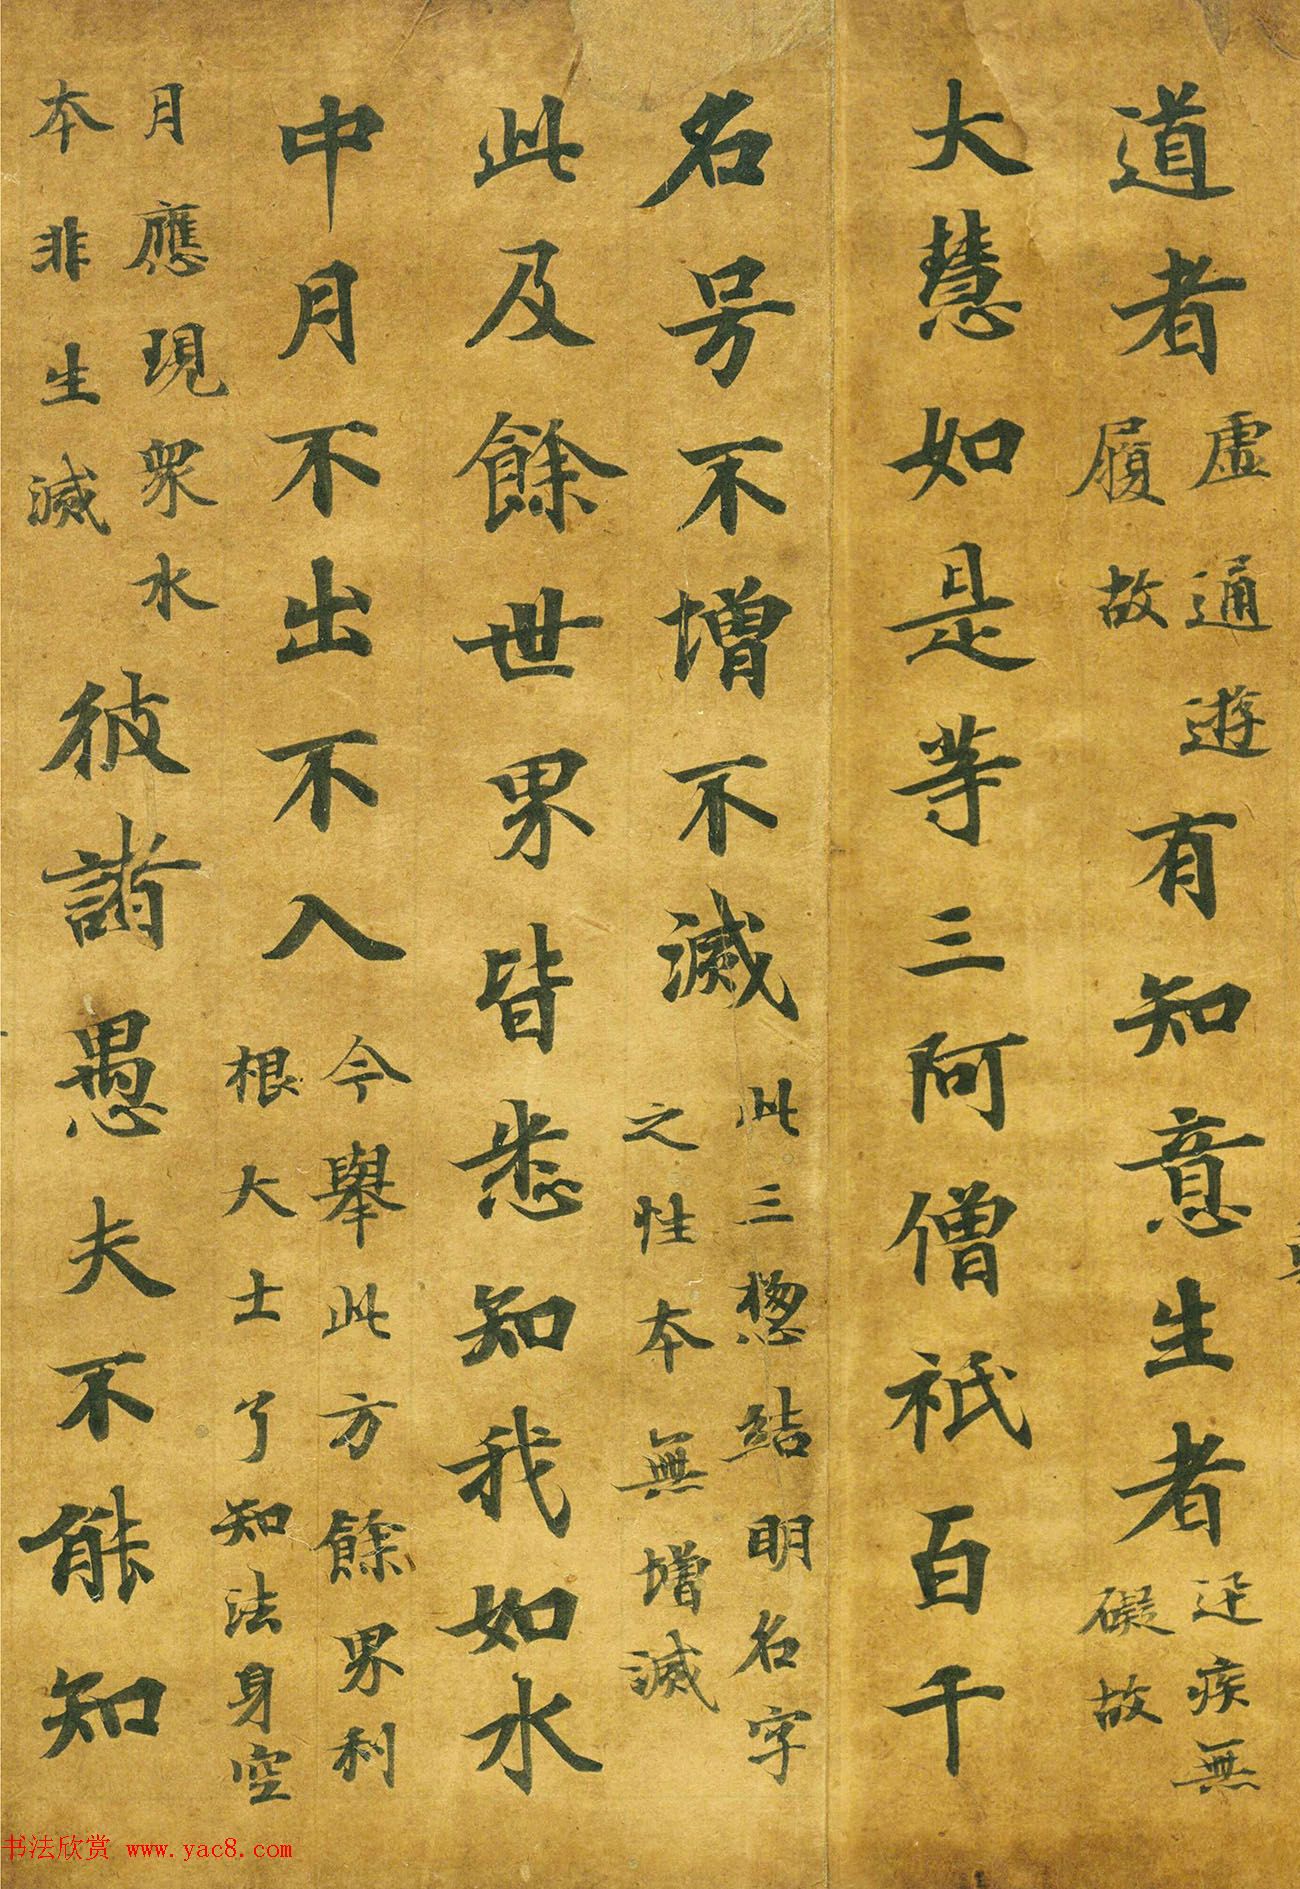 道者虛通遊履故有知意生者迅疾無礙故
大慧如是等三阿僧祇百千
名号不增不滅此三揔結明名字之性本無增減
此及餘世界皆悉知我如水
中月不出不入今舉此方餘界利根大士了知法身空
月應現衆水本非生滅彼諸愚夫不能知
书法欣赏 www.yac8.com